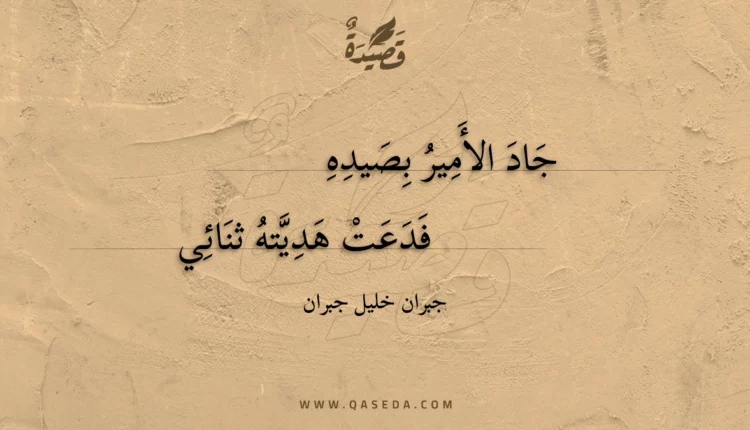 قَصِيدَةٌ
جَادَ الأَمِيرُ بِصَيدِهِ
فَدَعَتْ هَدِيَّتهُ ثنَائِي
جبران خليل جبران
WWW.QASEDA.COM